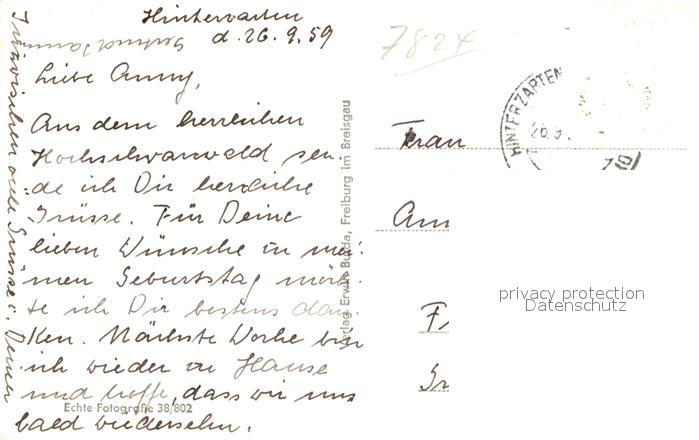 Hinterzarten
d. 26.9.59
Liebe Anny,
Aus dem herrlichen
Hochschwarzwald sen-
de ich Dir herzliche
Grüsse. Für Deine
lieben Wünsche zu mei-
nen Geburtstag möch-
te ich Dir bestens dan-
ken. Nächste Woche bin
ich wieder zu Hause
und hoffe, dass wir uns
bald wiedersehn.
Inzwischen alle Grüsse Deiner
Gertrud
Echte Fotografie 38/802
Verlag Erwin Burda, Freiburg im Breisgau
7824
HINTERZARTEN
26.9
Frau
Ann
F
Gr
privacy protection
Datenschutz